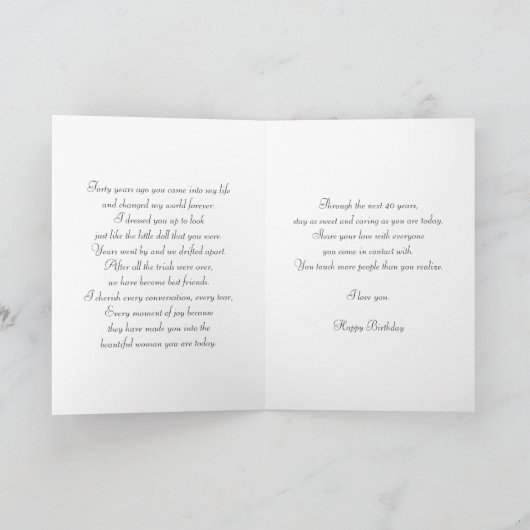 Forty years ago you came into my life
and changed my world forever.
I dressed you up to look
just like the little doll that you were.
Years went by and we drifted apart.
After all the trials were over,
we have become best friends.
I cherish every conversation, every tear,
Every moment of joy because
they have made you into the
beautiful woman you are today.
Through the next 40 years,
stay as sweet and caring as you are today.
Share your love with everyone
you come in contact with.
You touch more people than you realize.
I love you.
Happy Birthday